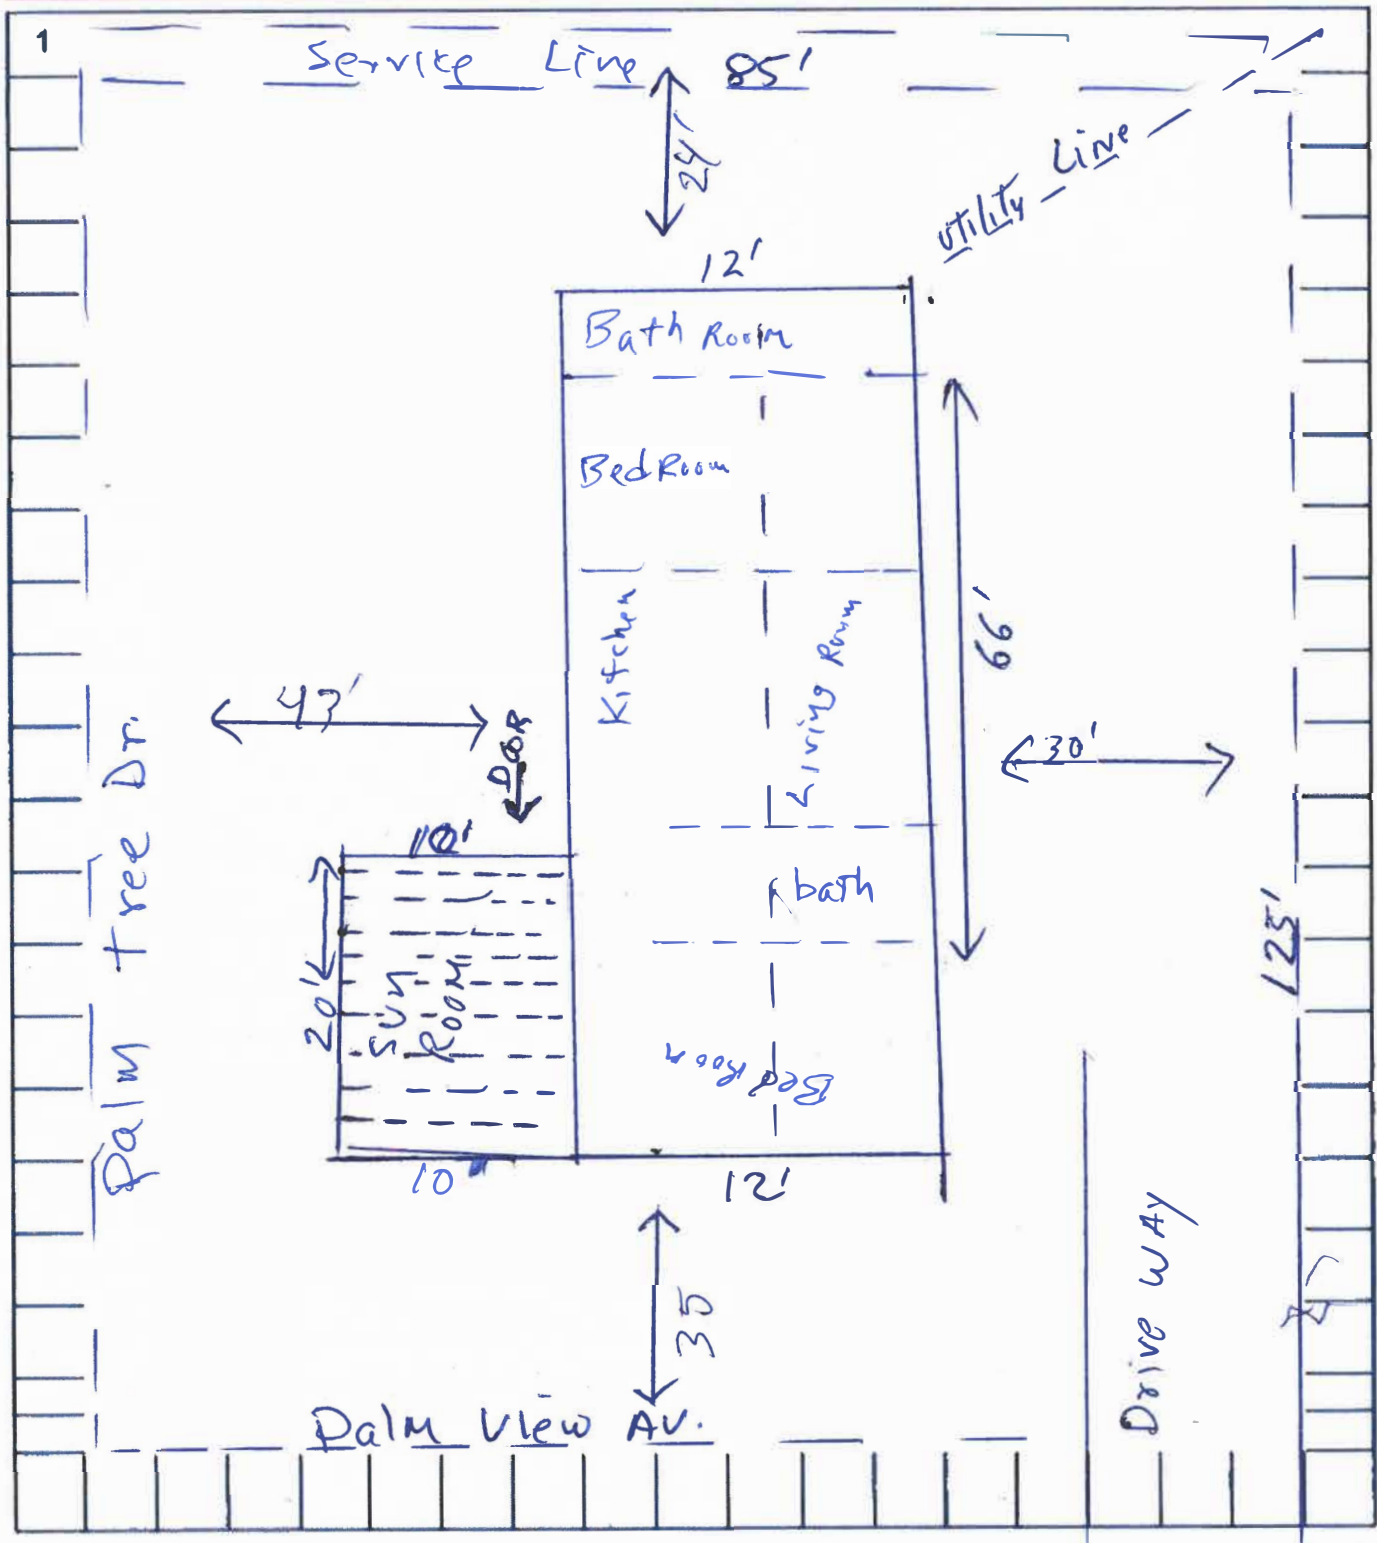 1
Service Line 85'
24'
Utility Line
12'
Bath Room
BedRoom
Kitchen
Living Room
66'
43'
DOOR
30'
10'
bath
20'
SUN
ROOM
Bed Room
125'
Palm Tree Dr.
10
12'
35
Drive WAY
Palm View AV.